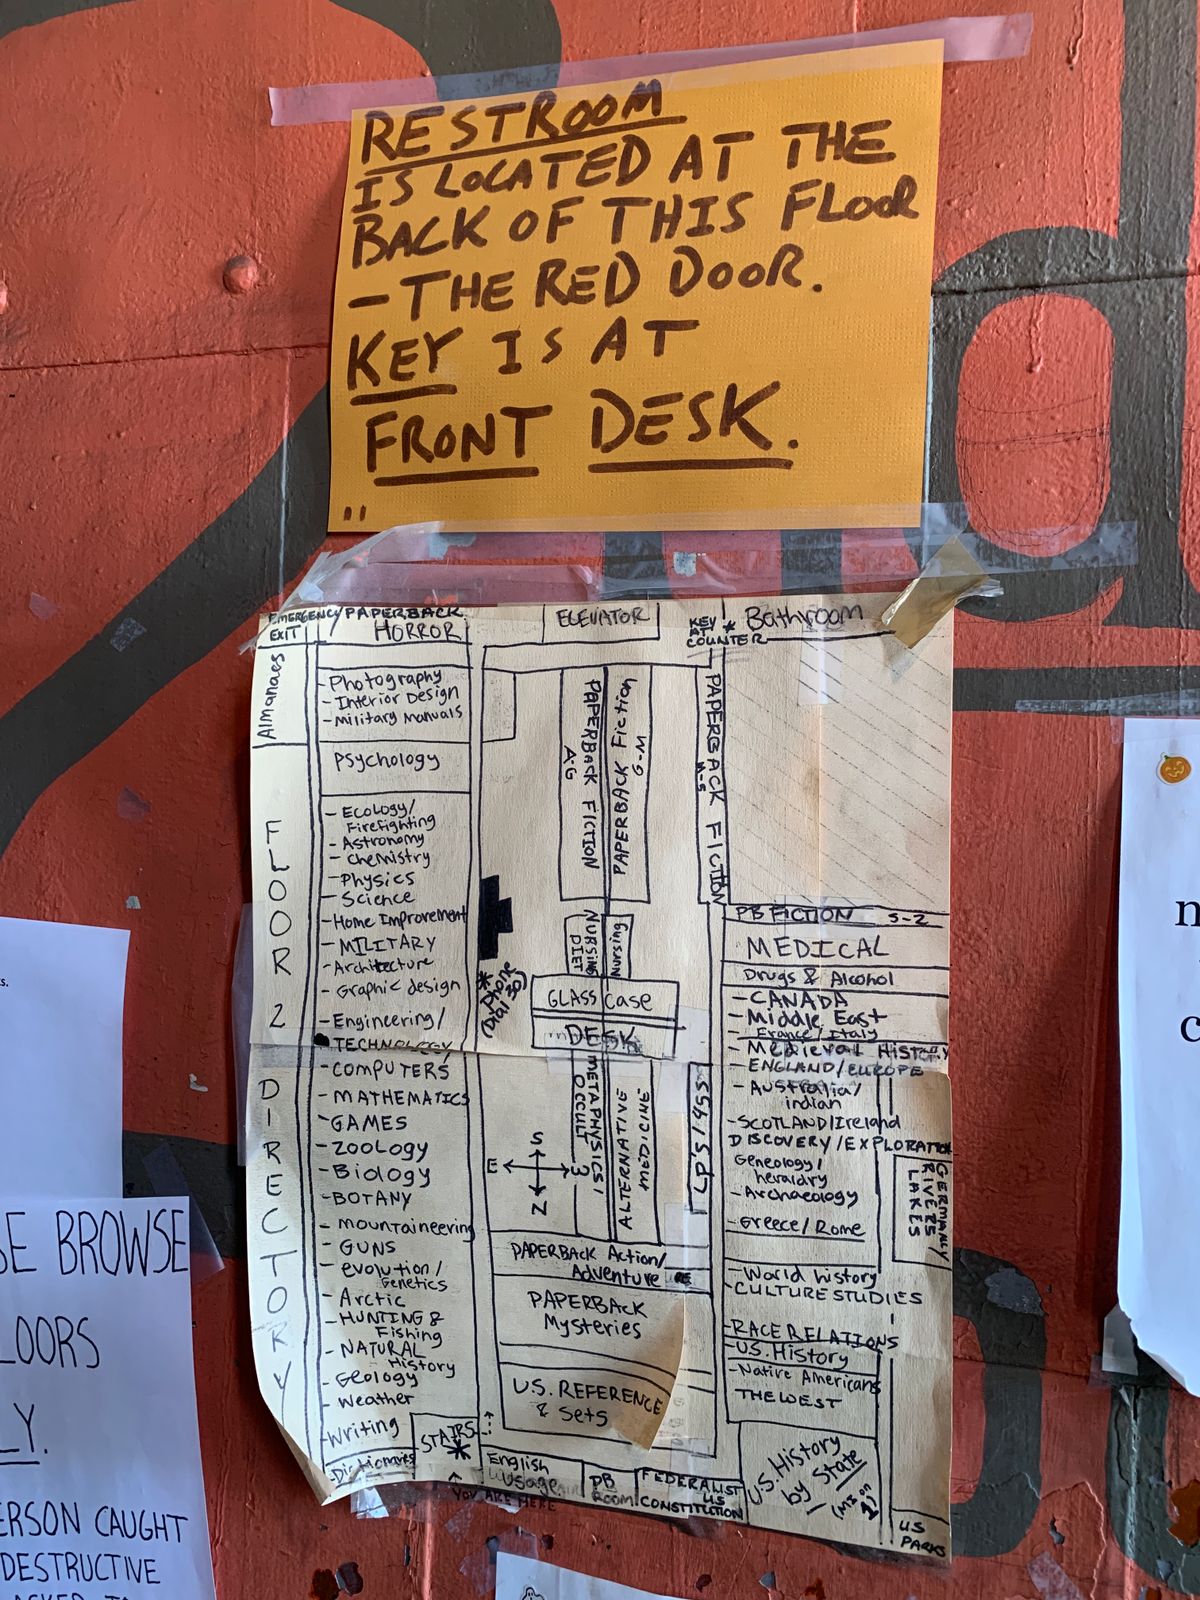 RESTROOM
IS LOCATED AT THE
BACK OF THIS FLOOR
- THE RED DOOR.
KEY IS AT
FRONT DESK.
EMERGENCY
EXIT
PAPERBACK
HORROR
ELEVATOR
KEY *
AT
COUNTER
Bathroom
Almanacs
FLOOR 2 DIRECTORY
- Photography
- Interior Design
- Military Manuals
Psychology
- Ecology/
Firefighting
- Astronomy
- Chemistry
- Physics
- Science
- Home Improvement
- MILITARY
- Architecture
- Graphic design
- Engineering/
TECHNOLOGY
- COMPUTERS
- MATHEMATICS
- GAMES
- ZOOLOGY
- Biology
- BOTANY
- mountaineering
- GUNS
- evolution/
Genetics
- Arctic
- HUNTING &
Fishing
- NATURAL
History
- Geology
- Weather
- Writing
Dictionaries
STAIRS
*
YOU ARE HERE
PAPERBACK FICTION
A-G
PAPERBACK Fiction
G-M
PAPERBACK FICTION
M-S
NURSING
DIET
Nursing
* Phone
(Dial 30)
GLASS case
DESK
METAPHYSICS/
OCCULT
ALTERNATIVE
MEDICINE
LP'S / 45S
S
E
N
PAPERBACK Action/
Adventure
PAPERBACK
Mysteries
U.S. REFERENCE
& Sets
English
Usage
PB
ROOM
FEDERALIST
US
CONSTITUTION
PB FICTION S-Z
MEDICAL
Drugs & Alcohol
- CANADA
- Middle East
- France/Italy
- Medieval HISTORY
- ENGLAND/EUROPE
- Australia/
indian
- SCOTLAND/Ireland
DISCOVERY/EXPLORATION
Geneology/
heraldry
- Archaeology
- Greece/Rome
GERMANY/
RIVERS/
LAKES
- World history
- CULTURE STUDIES
- RACE RELATIONS
- U.S. History
- Native Americans
THE WEST
U.S. History
by State
US
PARKS
SE BROWSE
LOORS
LY.
ERSON CAUGHT
DESTRUCTIVE